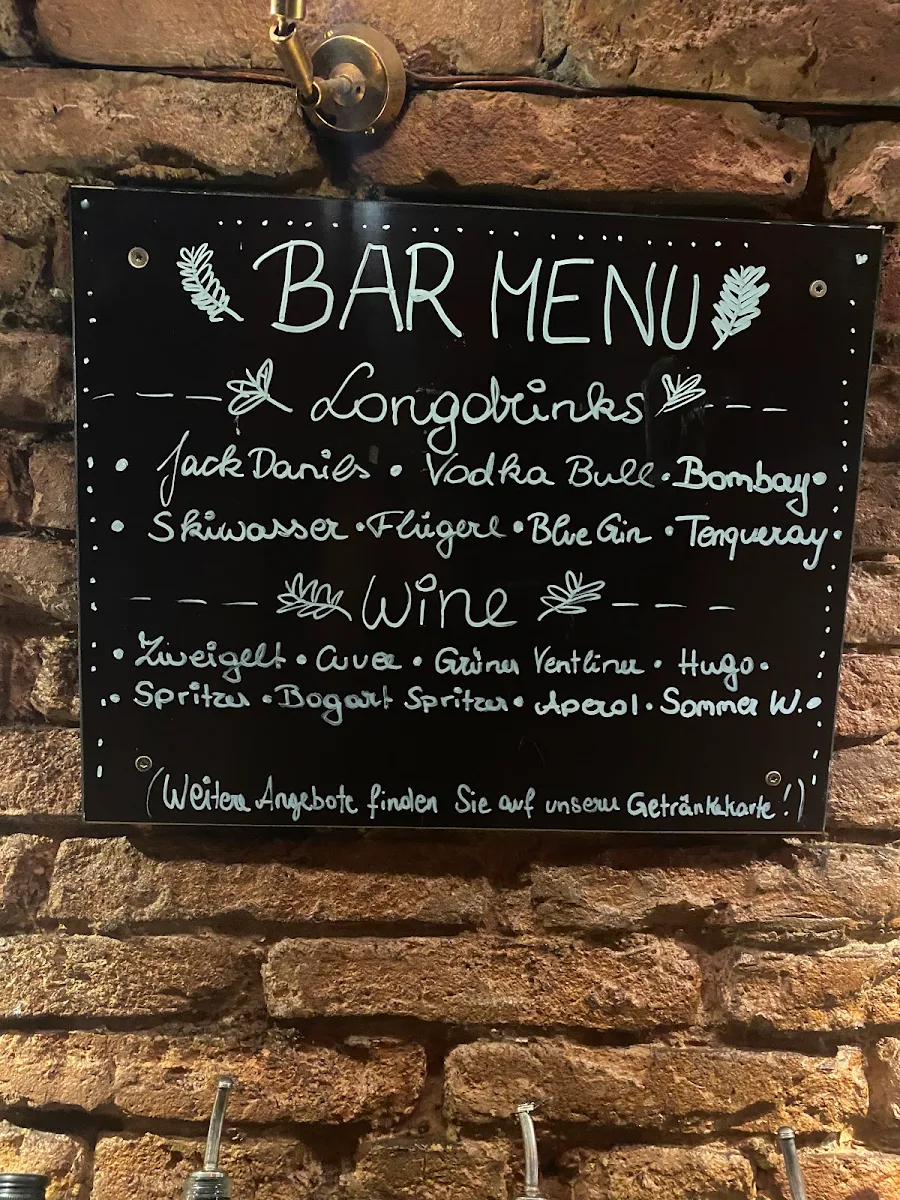 BAR MENU
Longdrinks
• Jack Daniels • Vodka Bull • Bombay •
• Skiwasser • Flügerl • Blue Gin • Tenqueray •
Wine
• Zweigelt • Cuvee • Grüner Ventliner • Hugo •
• Spritzer • Bogart Spritzer • Aperol • Sommer W. •
(Weitere Angebote finden Sie auf unserer Getränkekarte!)